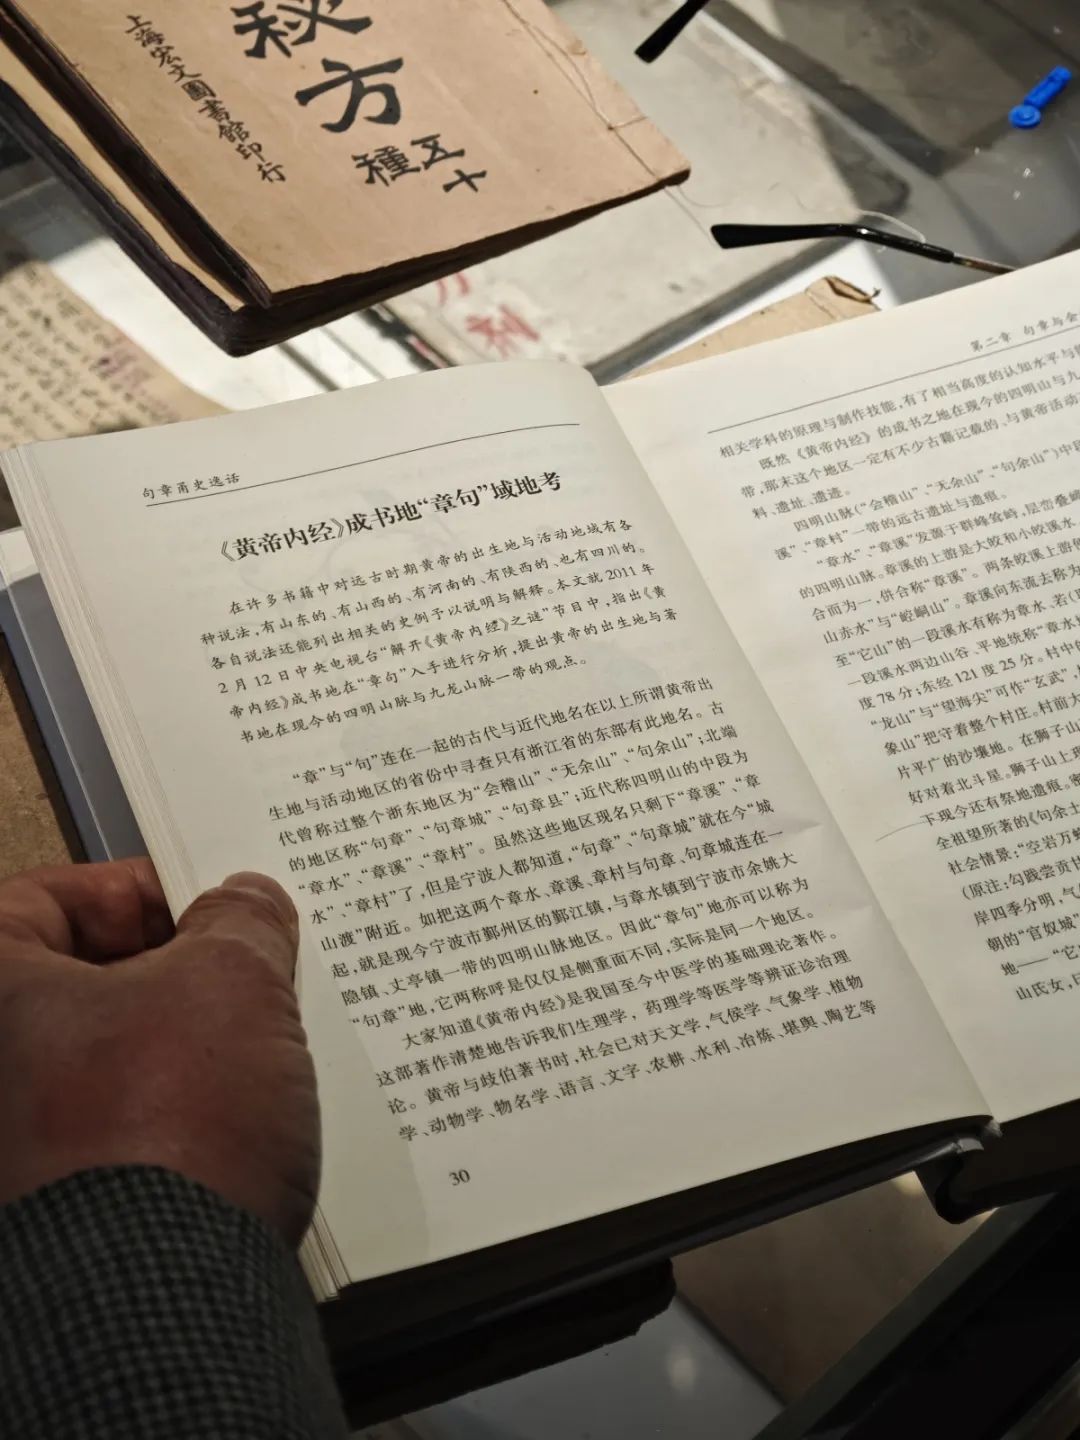 秘方
五十
種
上海宏文圖書館印行
剂
句章甬史逸话
《黄帝内经》成书地“章句”域地考
在许多书籍中对远古时期黄帝的出生地与活动地域有各
种说法，有山东的、有山西的、有河南的、有陕西的、也有四川的。
各自说法还能列出相关的史例予以说明与解释。本文就2011年
2月12日中央电视台“解开《黄帝内经》之谜”节目中，指出《黄
帝内经》成书地在“章句”入手进行分析，提出黄帝的出生地与著
书地在现今的四明山脉与九龙山脉一带的观点。
“章”与“句”连在一起的古代与近代地名在以上所谓黄帝出
生地与活动地区的省份中寻查只有浙江省的东部有此地名。古
代曾称过整个浙东地区为“会稽山”、“无余山”、“句余山”；北端
的地区称“句章”、“句章城”、“句章县”；近代称四明山的中段为
“章水”、“章溪”、“章村”。虽然这些地区现名只剩下“章溪”、“章
水”、“章村”了，但是宁波人都知道，“句章”、“句章城”就在今“城
山渡”附近。如把这两个章水、章溪、章村与句章、句章城连在一
起，就是现今宁波市鄞州区的鄞江镇，与章水镇到宁波市余姚大
隐镇、丈亭镇一带的四明山脉地区。因此“章句”地亦可以称为
“句章”地，它两称呼是仅仅是侧重面不同，实际是同一个地区。
大家知道《黄帝内经》是我国至今中医学的基础理论著作。
这部著作清楚地告诉我们生理学，药理学等医学等辨证诊治理
论。黄帝与歧伯著书时，社会已对天文学，气侯学、气象学、植物
学、动物学、物名学、语言、文字、农耕、水利、冶炼、堪舆、陶艺等
30
第二章 句章与会
相关学科的原理与制作技能，有了相当高度的认知水平与
既然《黄帝内经》的成书之地在现今的四明山与九
带，那末这个地区一定有不少古籍记载的、与黄帝活动
料、遗址、遗迹。
四明山脉（“会稽山”、“无余山”、“句余山”）中段
溪”、“章村”一带的远古遗址与遗痕。
“章水”、“章溪”发源于群峰耸峙，层峦叠嶂
的四明山脉。章溪的上游是大皎和小皎溪水
合而为一，併合称“章溪”。两条皎溪上游
山赤水”与“崆峒山”。章溪向东流去称为
至“它山”的一段溪水有称为章水、若（
一段溪水两边山谷、平地统称“章水
度78分；东经121度25分。村中
“龙山”与“望海尖”可作“玄武”，
象山”把守着整个村庄。村前大
片平广的沙壤地。在狮子山
好对着北斗星。狮子山上
下现今还有祭地遗痕。
全祖望所著的《句余土
社会情景：“空岩万
（原注：勾践尝贡
岸四季分明，气
朝的“官奴城”
地——“它
山氏女，